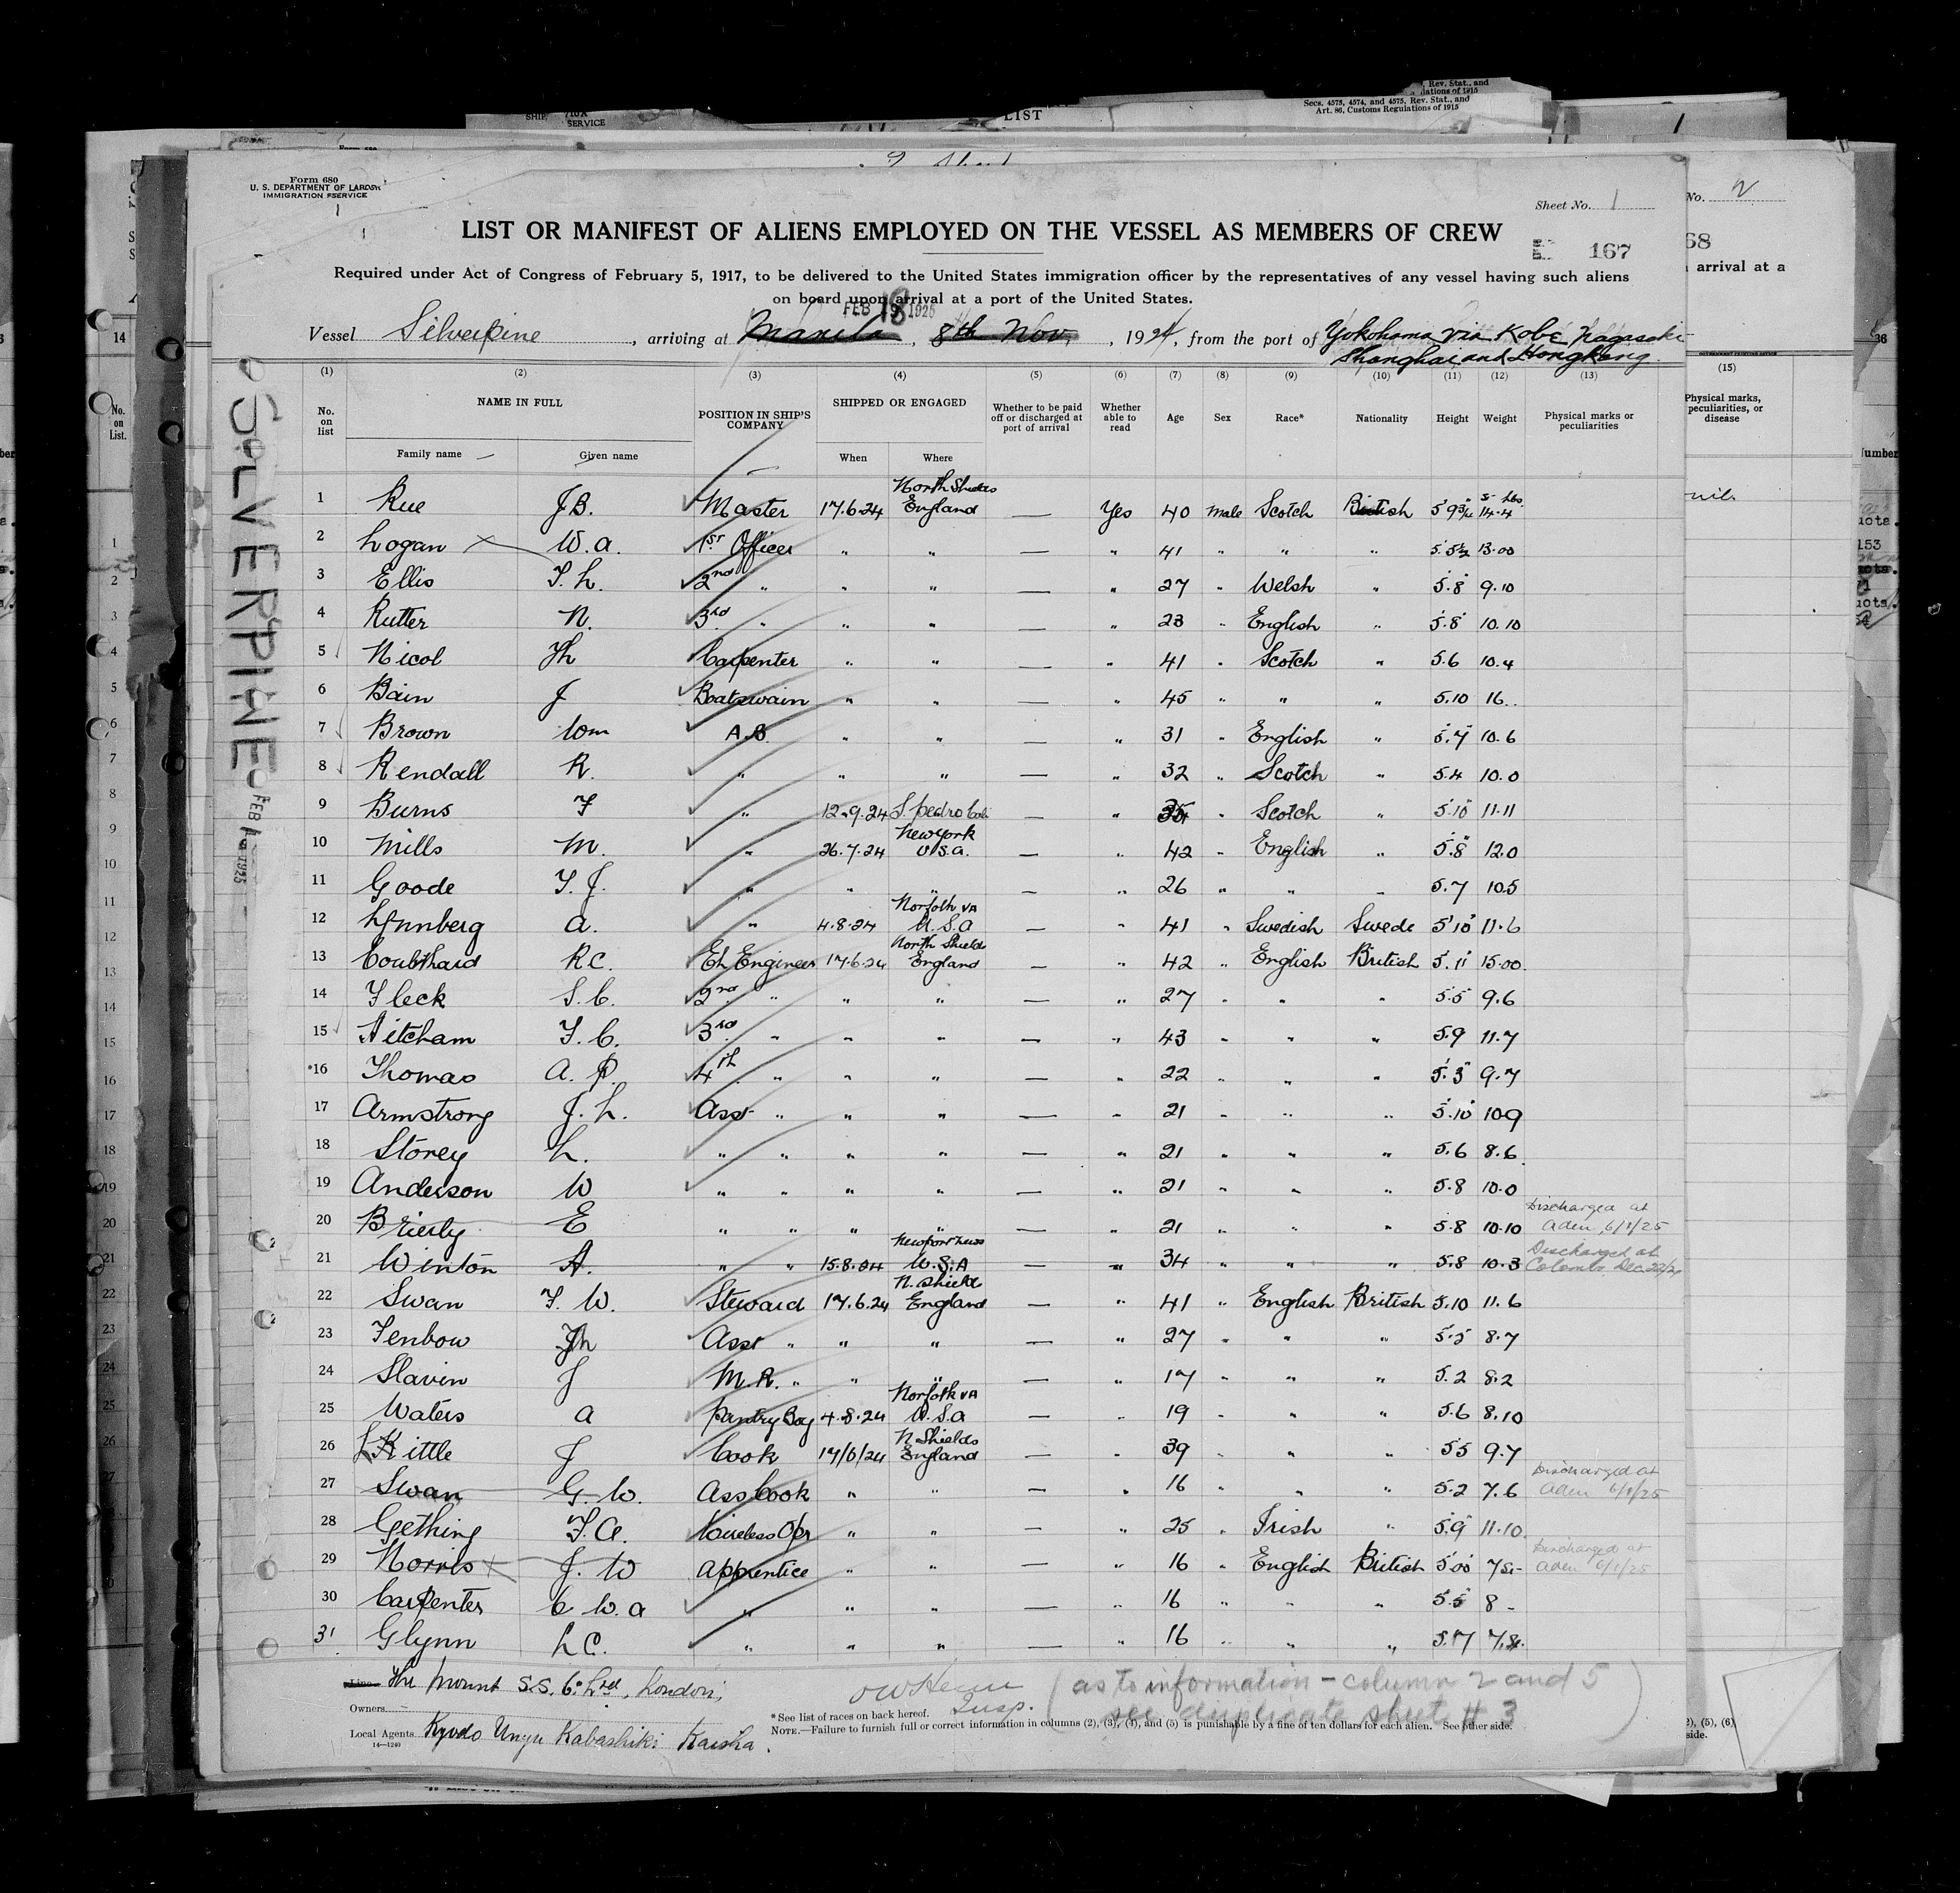 Form 680
U. S. DEPARTMENT OF LABOR
IMMIGRATION SERVICE
Sheet No. 1
LIST OR MANIFEST OF ALIENS EMPLOYED ON THE VESSEL AS MEMBERS OF CREW
167
Required under Act of Congress of February 5, 1917, to be delivered to the United States immigration officer by the representatives of any vessel having such aliens
on board upon arrival at a port of the United States.
FEB 18 1925
Vessel Silverpine, arriving at Manila, 8th Nov, 1924, from the port of Yokohama via Kobe Nagasaki
Shanghai and Hongkong.
(1) (2) (3) (4) (5) (6) (7) (8) (9) (10) (11) (12) (13)
No. on list NAME IN FULL POSITION IN SHIP'S COMPANY SHIPPED OR ENGAGED Whether to be paid off or discharged at port of arrival Whether able to read Age Sex Race* Nationality Height Weight Physical marks or peculiarities
Family name Given name When Where
1 Rue J.B. Master 17.6.24 North Shields England — Yes 40 Male Scotch British 5 9¾ 14.4
2 Logan W.A. 1st Officer " " — " 41 " " " 5.5½ 13.00
3 Ellis T. L. 2nd " " " — " 27 " Welsh " 5.8 9.10
4 Rutter N. 3rd " " " — " 23 " English " 5.8 10.10
5 Nicol Jh Carpenter " " — " 41 " Scotch " 5.6 10.4
6 Bain J Boatswain " " — " 45 " " " 5.10 16
7 Brown Wm A.B. " " — " 31 " English " 5.7 10.6
8 Rendall R. " " " — " 32 " Scotch " 5.4 10.0
9 Burns F " 12.9.24 S. Pedro Cali — " " Scotch 5.10 11.11
10 Mills M. " 26.7.24 New York U.S.A. — " 42 " English " 5.8 12.0
11 Goode T. J. " " " — " 26 " " " 5.7 10.5
12 Lynnberg A. " 4.8.24 Norfolk VA U.S.A — " 41 " Swedish Swede 5'10 11.6
13 Coulthard R.C. Ch Engineer 17.6.24 North Shields England — " 42 " English British 5.11 15.00
14 Fleck S.C. 2nd " " " — " 27 " " " 5.5 9.6
15 Aitcham T. C. 3rd " " " — " 43 " " " 5.9 11.7
16 Thomas A. P. 4th " " " — " 22 " " " 5.3 9.7
17 Armstrong J. L. Asst " " " — " 21 " " " 5.10 10.9
18 Storey L. " " " " — " 21 " " " 5.6 8.6
19 Anderson W " " " " — " 21 " " " 5.8 10.0
20 Brierly E " " " " — " 21 " " " 5.8 10.10 Discharged at Aden, 6/1/25
21 Winton A. " " 15.8.24 Newport News U.S.A — " 34 " " " 5.8 10.3 Discharged at Colombo Dec
22 Swan F. W. Steward 17.6.24 N. Shields England — " 41 " English British 5.10 11.6
23 Tenbow Jh Asst " " " — " 27 " " " 5.5 8.7
24 Slavin J M.R. " " " — " 17 " " " 5.2 8.2
25 Waters A Pantry Boy 4.8.24 Norfolk VA U.S.A — " 19 " " " 5.6 8.10
26 Kittle J Cook 17/6/24 N Shields England — " 39 " " " 5.5 9.7
27 Swan G. W. Ass Cook " " — " 16 " " " 5.2 7.6 Discharged at Aden 6/1/25
28 Gething T.A. Wireless Opr " " — " 25 " Irish " 5.9 11.10
29 Norris J. W Apprentice " " — " 16 " English British 5'00 Discharged at Aden 6/1/25
30 Carpenter C W. A " " " — " 16 " " " 5.5 8 -
31 Glynn L C. " " " — " 16 " " " 5.7 7.8
SILVERPINE
FEB 1925
Line The Mount S.S. Co Ltd, London,
Owners
Local Agents Kyodo Unyu Kabashiki Kaisha.
14—1240
Insp.
(as to information - column 2 and 5
see duplicate sheet # 3)
*See list of races on back hereof.
NOTE.—Failure to furnish full or correct information in columns (2), (3), (4), and (5) is punishable by a fine of ten dollars for each alien. See other side.
SERVICE
LIST
Secs. 4573, 4574, and 4575, Rev. Stat., and
Art. 86, Customs Regulations of 1915
No. 2
68
arrival at a
(15)
Physical marks, peculiarities, or disease
nil